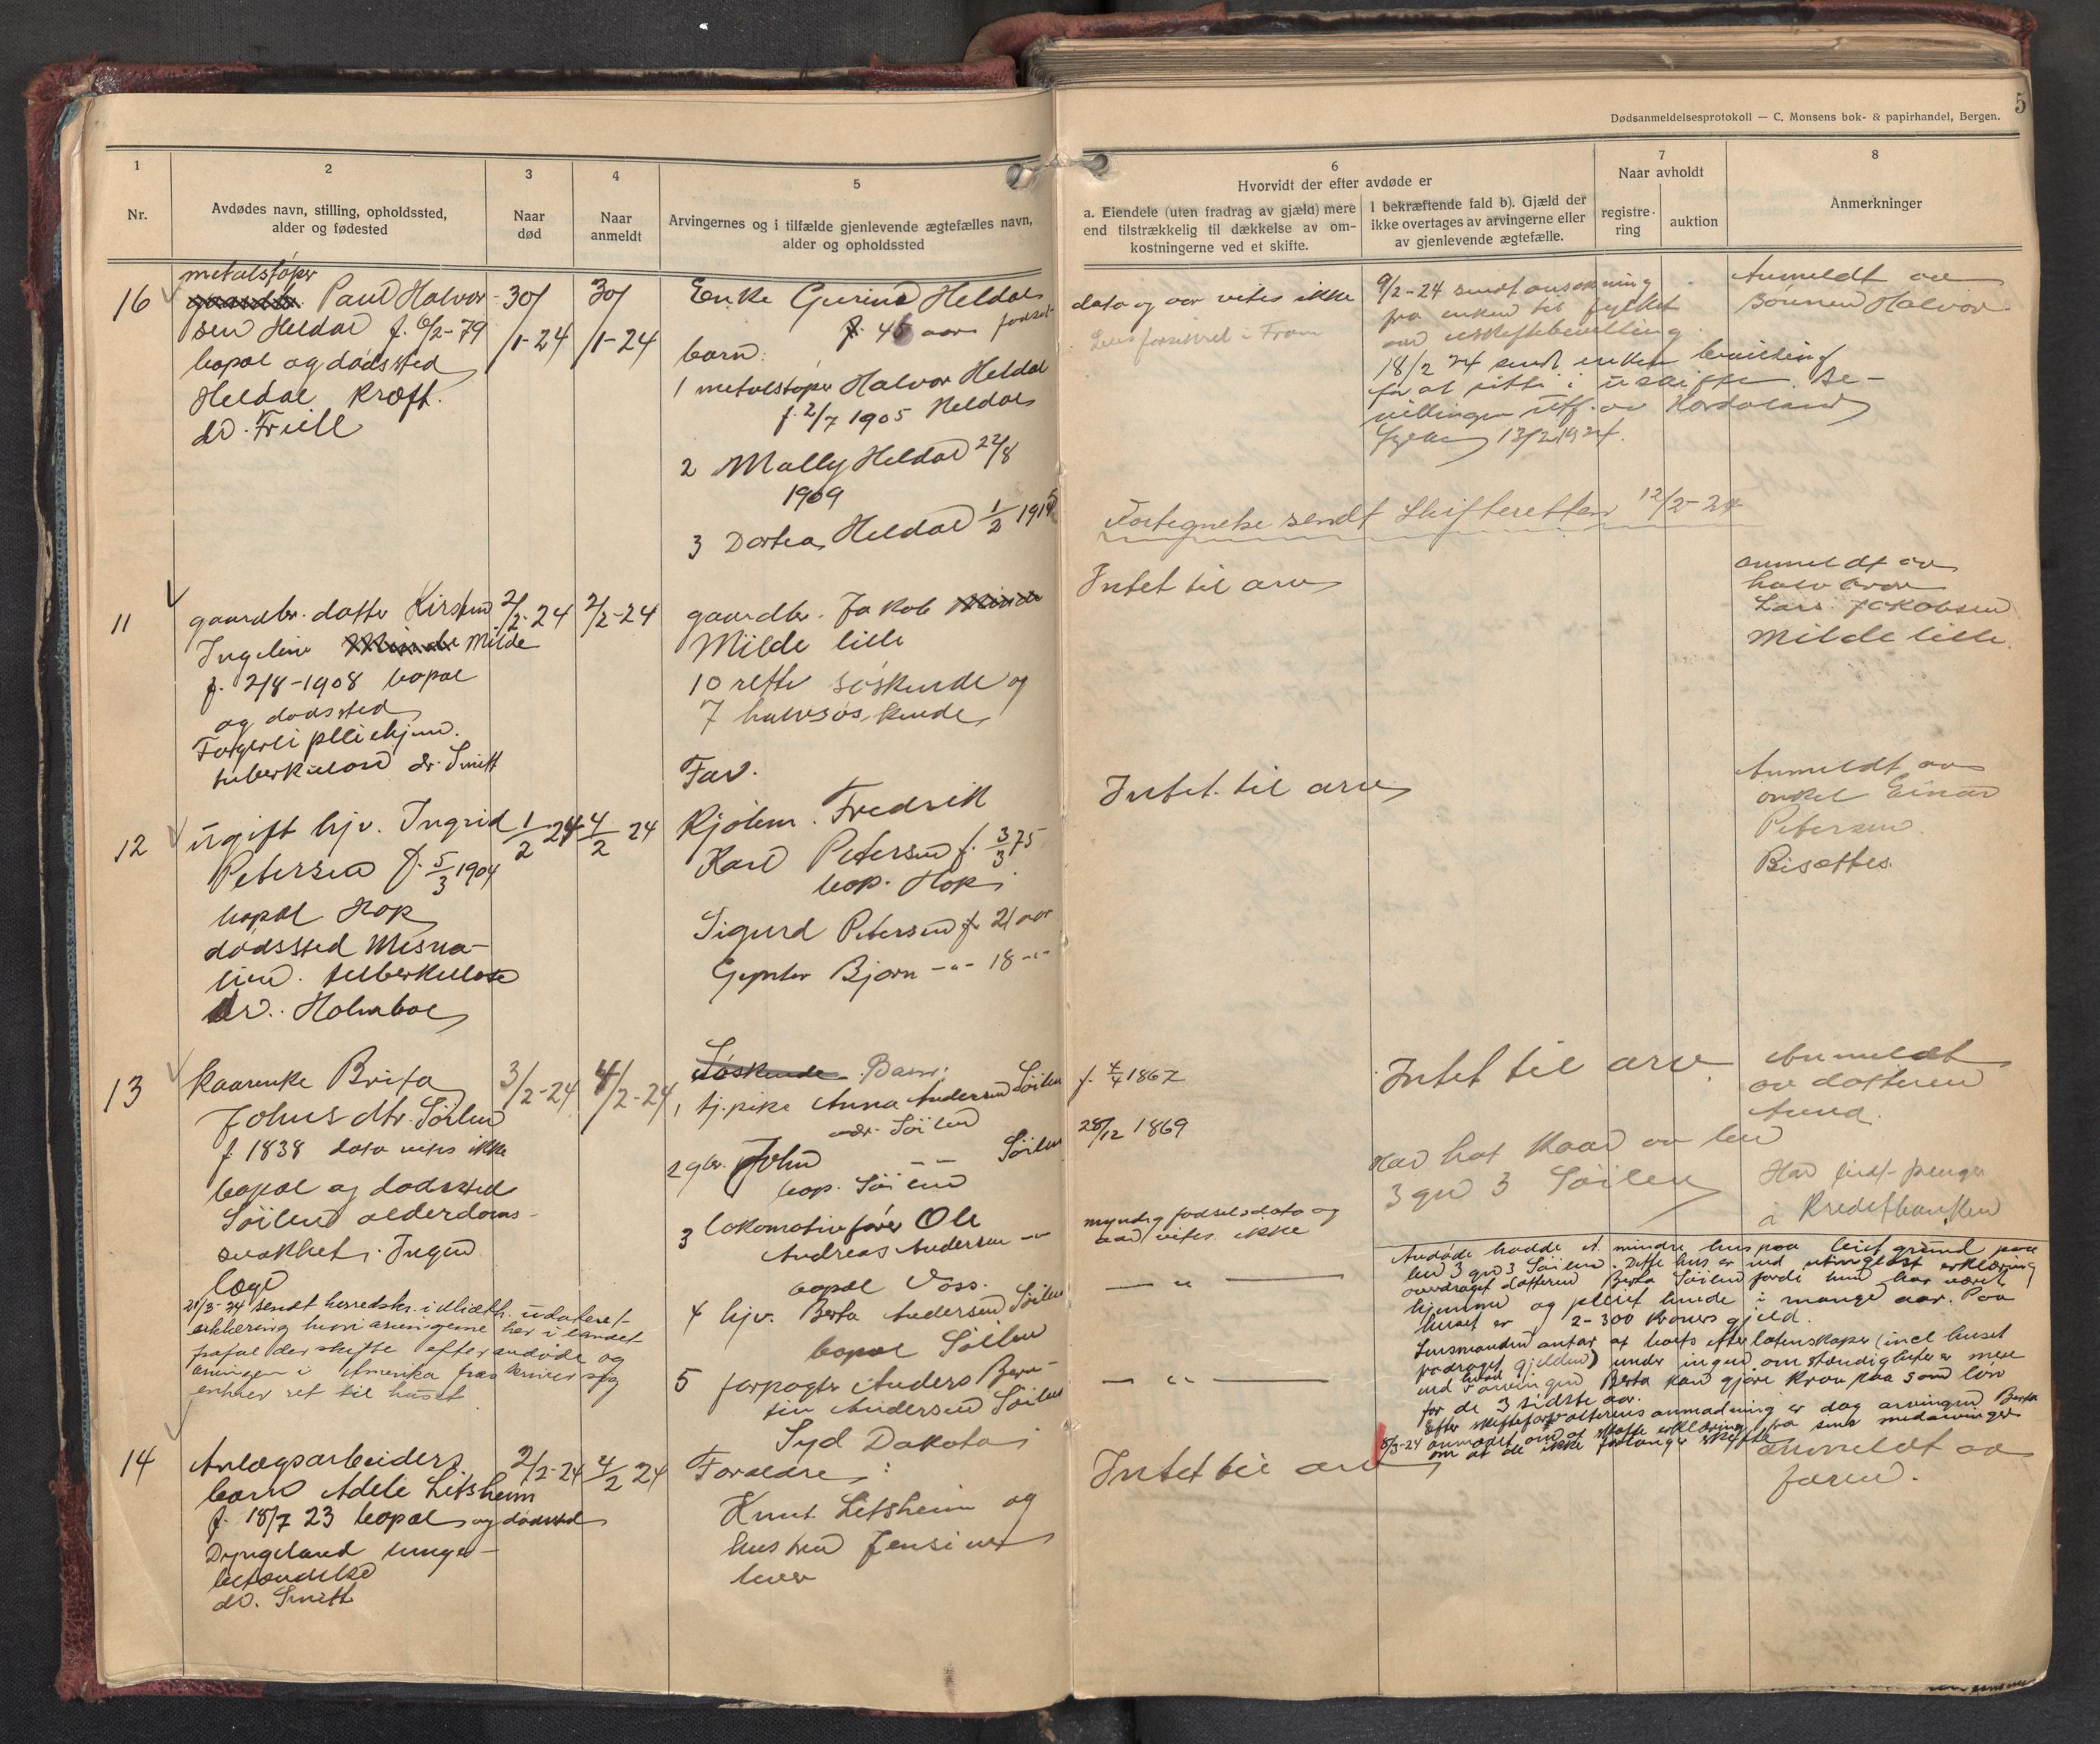 5
Dødsanmeldelsesprotokoll — C. Monsens bok- & papirhandel, Bergen.
1
Nr.
2
Avdødes navn, stilling, opholdssted,
alder og fødested
3
Naar
død
4
Naar
anmeldt
5
Arvingernes og i tilfælde gjenlevende ægtefælles navn,
alder og opholdssted
6
Hvorvidt der efter avdøde er
a. Eiendele (uten fradrag av gjæld) mere
end tilstrækkelig til dækkelse av om-
kostningerne ved et skifte.
I bekræftende fald b). Gjæld der
ikke overtages av arvingerne eller
av gjenlevende ægtefælle.
7
Naar avholdt
registre-
ring
auktion
8
Anmerkninger
16
metalstøper
Paul Halvor-
sen Heldal f. 6/2-79
bopæl og dødssted
Heldal kræft.
dr. Friele
30/
/1-24
30/
/1-24
Enke Gurine Heldal
f. 46 aar
barn:
1 metalstøper Halvor Heldal
f. 2/7 1905 Heldal
2 Mally Heldal 22/8
1909
3 Dortea Heldal 1/2 1915
dato og aar vites ikke
Livsforsikret i Fram
9/2-24 sendt ansøkning
fra enken til fylket
om uskiftebevilling
18/2 24 sendt enken bevilling
for at sitte i uskifte. Be-
villingen utf. av Hordaland
fylke 13/2 1924.
Anmeldt av
sønnen Halvor
Fortegnelse sendt Skifteretten 12/2-24
11
gaardbr. datter Kirsten
Ingeline Milde
f. 2/8-1908 bopæl
og dødssted
Fagerli pleiehjem.
tuberkulose dr. Smitt
2/2-24
2/2-24
gaardbr. Jakob
Milde lille
10 rette søskende og
7 halvsøskende
Intet til arv
anmeldt av
halvbror
Lars Jakobsen
Milde lille.
12
Ugift hjv. Ingrid
Petersen f. 5/3 1904
bopæl Hop
dødssted Mesna-
lien. tuberkulose
dr. Holmboe
1/2 24
4/2 24
Far.
Kjøbm. Fredrik
Karl Petersen f. 3/3 75
bop. Hop
Sigurd Petersen f. 21 aar
Bjørn -"- 18 -"-
Intet til arv
Anmeldt av
onkel Einar
Petersen
Bisættes.
13
Kaarenke Brita
Johns dtr. Søilen
f. 1838 dato vites ikke
bopæl og dødssted
Søilen alderdoms-
svakhet. Ingen
læge
3/2-24
4/2-24
Søskende Barn:
1 tj.pike Anna Andersen Søilen
adr. Søilen
f. 4/4 1867
2 gbr. John — — Søilen
bop. Søilen
28/12 1869
3 lokomotivfører Ole
Andreas Andersen -"-
bopæl Voss.
myndig fødselsdato og
aar vites ikke
4 hjv. Berta Andersen Søilen
bopæl Søilen
— " —
5 forpagter Anders
Andersen Søilen
Syd Dakota
— " —
Intet til arv
Har hat kaar av bno
3 gno 3 Søilen
Anmeldt
av datteren
Anna.
Har indst. penger
i Kreditbanken
Avdøde hadde et mindre hus paa leiet grund paa
bno 3 gno 3 Søilen. Dette hus er ved utinglæst erklæring
overdraget datteren Berta Søilen fordi hun har været
hjemme og pleiet hende i mange aar. Paa
huset er 2-300 kroners gjeld.
Lensmanden antar at boets efterlatenskaper (incl huset
fradraget gjelden) under ingen omstændigheter er mere
end hvad arvingen Berta kan gjøre krav paa som løn
for de 3 sidste aar.
Efter skifteforvalterens anmodning er dog arvingen Berta
8/3-24 anmodet om at skaffe erklæring fra sine medarvinger
om at de ikke forlanger skifte
21/3-24 sendt herredskr. i Midth. udatert
erklæring hvori arvingerne her i landet
frafalder skifte efter avdøde og
arvingen i Amerika fraskriver sig
enhver ret til huset
14
Anlægsarbeiders
barn Adele Litsheim
f. 18/7 23 bopæl og dødssted
Dyngeland lunge-
betændelse
dr. Smitt
2/2-24
4/2 24
Forældre:
Knut Litsheim og
hustru Jensine
lever
Intet til arv
anmeldt av
faren.